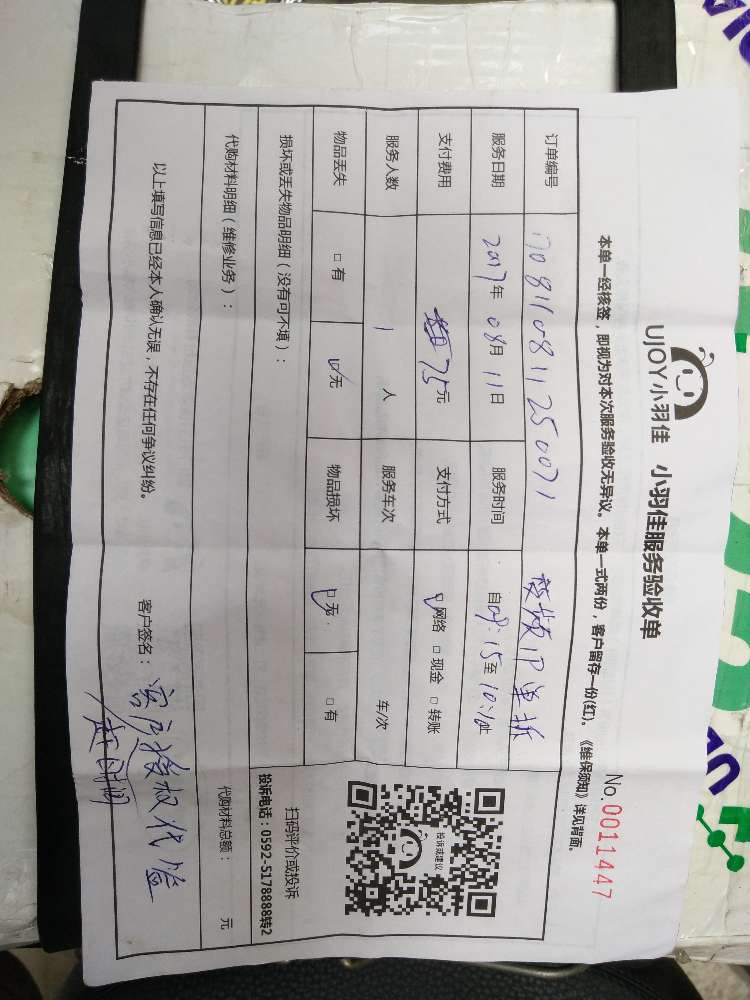 UJOY小羽佳 小羽佳服务验收单
No.0011447
本单一经核签，即视为对本次服务验收无异议。本单一式两份，客户留存一份(红)。《维保须知》详见背面。
订单编号 1708110811250071
服务日期 2017年08月11日 服务时间 自09:15至10:10止
支付费用 75元 支付方式 网络 □现金 □转账
服务人数 1人 服务车次 车/次
物品丢失 □有 无 物品损坏 无 □有
损坏或丢失物品明细（没有可不填）：
投诉或建议
扫码评价或投诉
投诉电话：0592-5178888转2
代购材料明细（维修业务）： 代购材料总额： 元
以上填写信息已经本人确认无误，不存在任何争议纠纷。
客户签名：客户授权代签